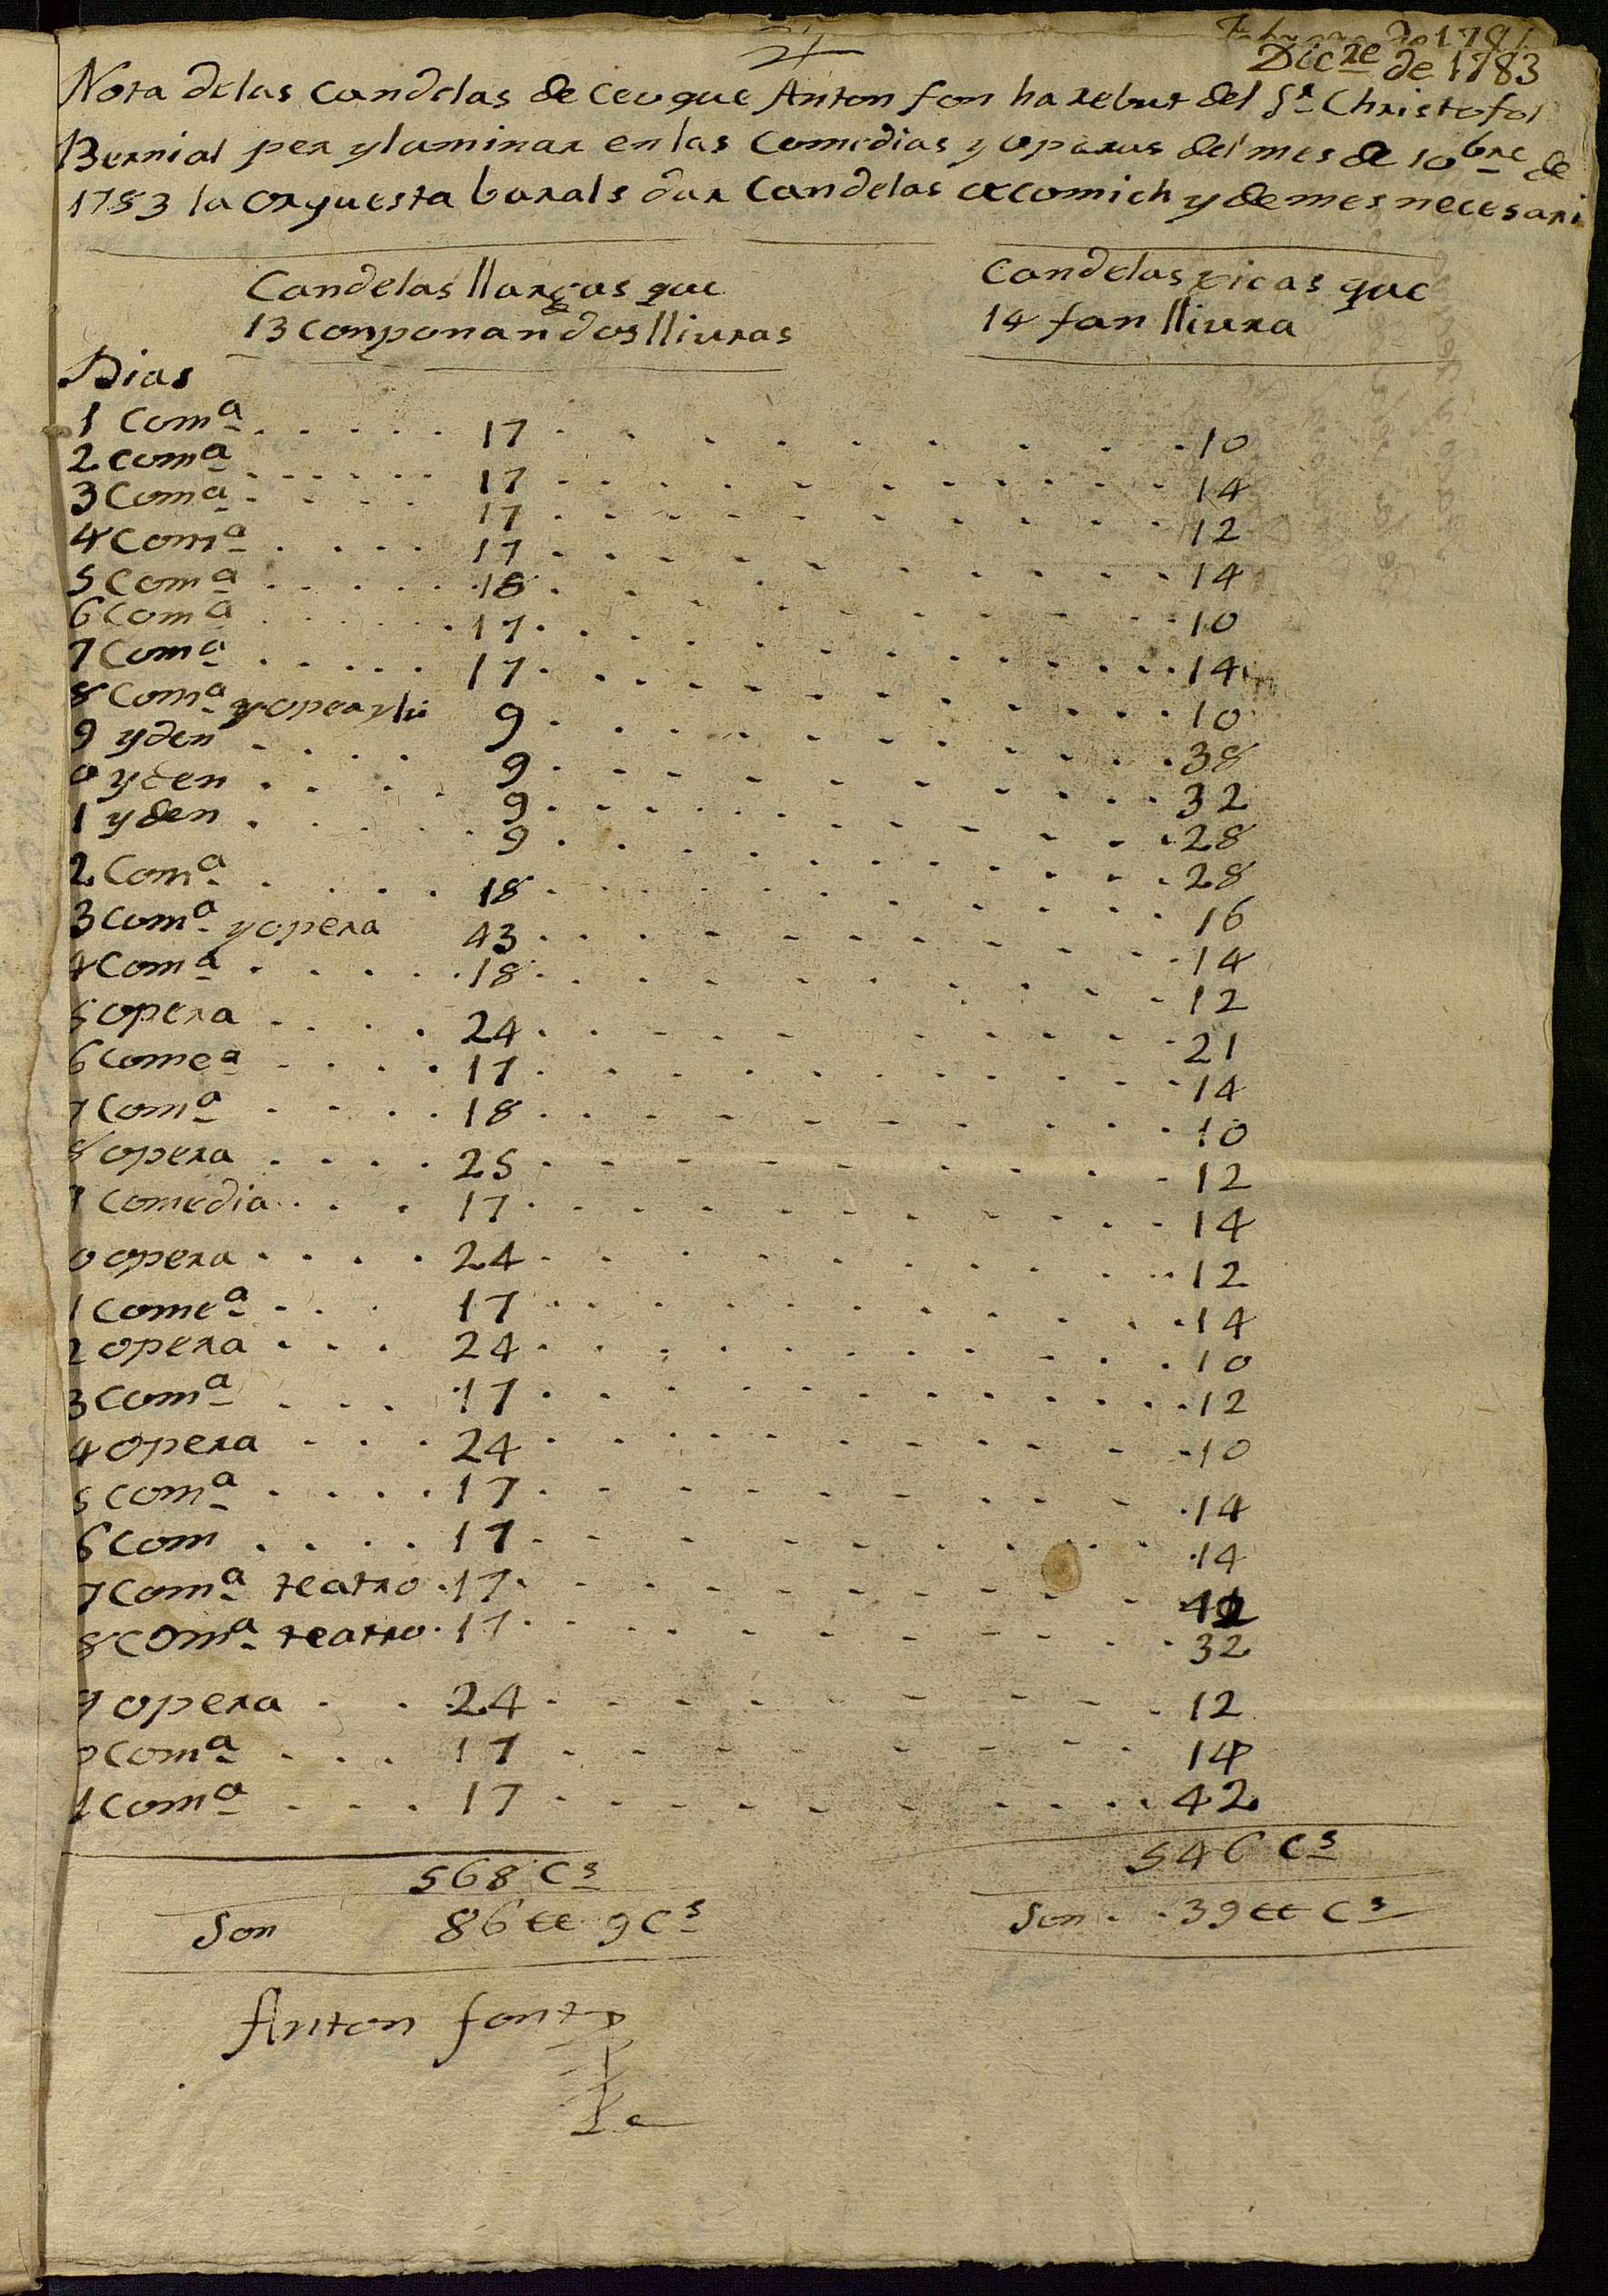 de 178
Dicre de 1783
Nota de las candelas de ceu que Anton fon ha rebut del Sr Christofol
Bernial per yluminar en las comedias y operas del mes de 10bre de
1783 la orquesta barals dar candelas al comich y demes necesari
Candelas llargas que
13 conponan dos lliuras
Candelas xicas que
14 fan lliura
Dias
1 Coma . . . . . 17 . . . . . . . . . 10
2 coma . . . . . 17 . . . . . . . . . 14
3 Coma . . . . . 17 . . . . . . . . . 12
4 Coma . . . . 17 . . . . . . . . . 14
5 Coma . . . . . 18 . . . . . . . . . 10
6 Coma . . . . . 17 . . . . . . . . . 14
7 Coma . . . . . 17 . . . . . . . . . 10
8 Coma y opera 9 . . . . . . . . . 38
9 yden . . . . 9 . . . . . . . . . 32
0 yden . . . . 9 . . . . . . . . . 28
1 yden . . . . 9 . . . . . . . . . 28
2 Coma . . . . . 18 . . . . . . . . . 16
3 Coma y opera 43 . . . . . . . . . 14
4 Coma . . . . . 18 . . . . . . . . . 12
5 opera . . . . 24 . . . . . . . . . 21
6 Comea . . . . 17 . . . . . . . . . 14
7 Coma . . . . 18 . . . . . . . . . 10
8 opera . . . . 25 . . . . . . . . . 12
9 Comedia . . . 17 . . . . . . . . . 14
0 opera . . . . 24 . . . . . . . . . 12
1 Comea . . . 17 . . . . . . . . . 14
2 opera . . . 24 . . . . . . . . . 10
3 Coma . . . 17 . . . . . . . . . 12
4 opera . . . 24 . . . . . . . . . 10
5 Coma . . . . 17 . . . . . . . . . 14
6 Com . . . . 17 . . . . . . . . . 14
7 Coma teatro . 17 . . . . . . . . .
8 Coma teatro . 17 . . . . . . . . . 32
9 opera . . 24 . . . . . . . . . 12
0 Coma . . . 17 . . . . . . . . . 14
1 Coma . . . 17 . . . . . . . . . 42
568 Cs 546 Cs
Son 86 tt 9 Cs Son . . 39 tt Cs
Anton font